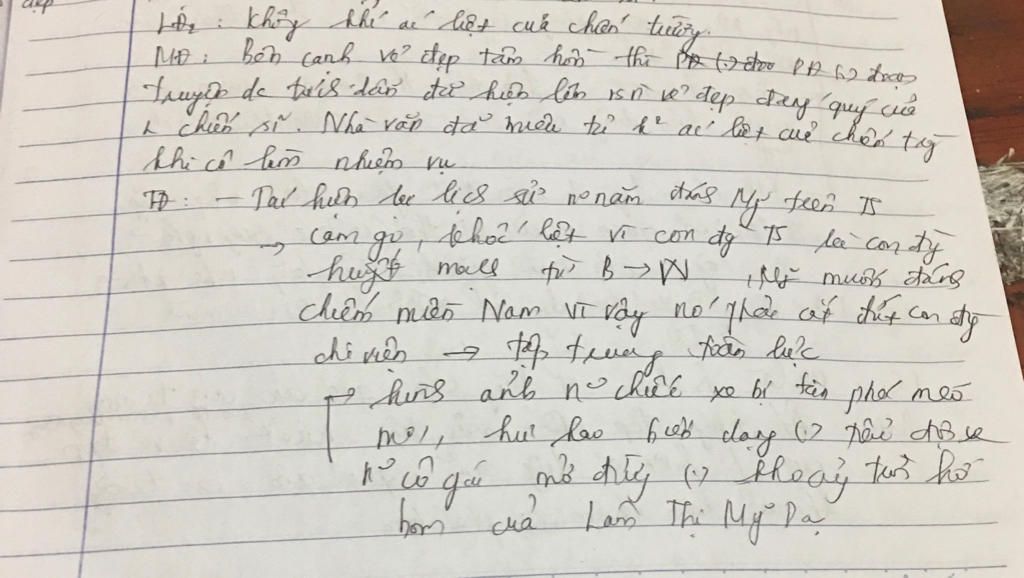 đẹp
LĐ2: Không khí ác liệt của chiến trường.
MĐ: Bên cạnh vẻ đẹp tâm hồn thì PĐ (.) đoạn
truyện dc trích dẫn đã hiện lên vẻ đẹp đáng quý của
chiến sĩ. Nhà văn đã miêu tả k2 ác liệt của chiến tg
khi cô làm nhiệm vụ
TĐ: - Tái hiện lại lịch sử n~ năm đánh Mỹ trên TS
→ cam go, khốc liệt vì con đg TS là con đg
huyết mạch từ B → N, Mỹ muốn đánh
chiếm miền Nam vì vậy nó phải cắt đứt con đg
chi viện → tập trung toàn lực
→ hình ảnh n~ chiếc xe bị tàn phá méo
mó, hư hao biến dạng (.) tiểu đội xe
n~ cô gái mở đường (.) khoảng trời hố
bom của Lâm Thị Mỹ Dạ